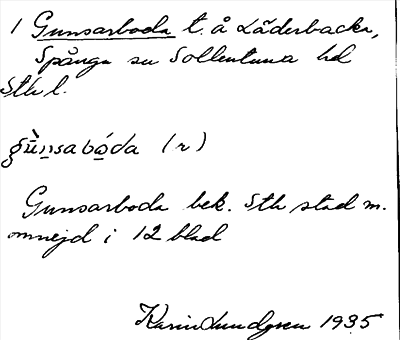 1 Gunsarboda t. å Läderbacka,
Spånga sn Sollentuna hd
Sth l.
gùnsabóda (r)
Gunsarboda bek. Sth stad m.
omnejd i 12 blad
Karin Lundgren 1935